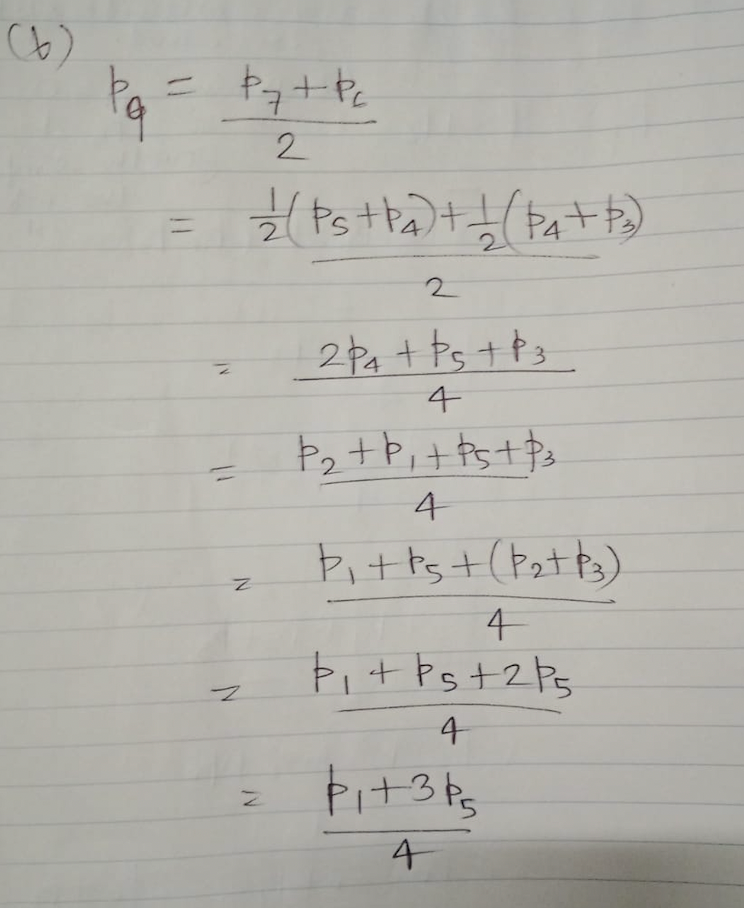 (b)
p₉ = (p₇ + p₆)/2
= (½(p₅ + p₄) + ½(p₄ + p₃))/2
= (2p₄ + p₅ + p₃)/4
= (p₂ + p₁ + p₅ + p₃)/4
= (p₁ + p₅ + (p₂ + p₃))/4
= (p₁ + p₅ + 2p₅)/4
= (p₁ + 3p₅)/4